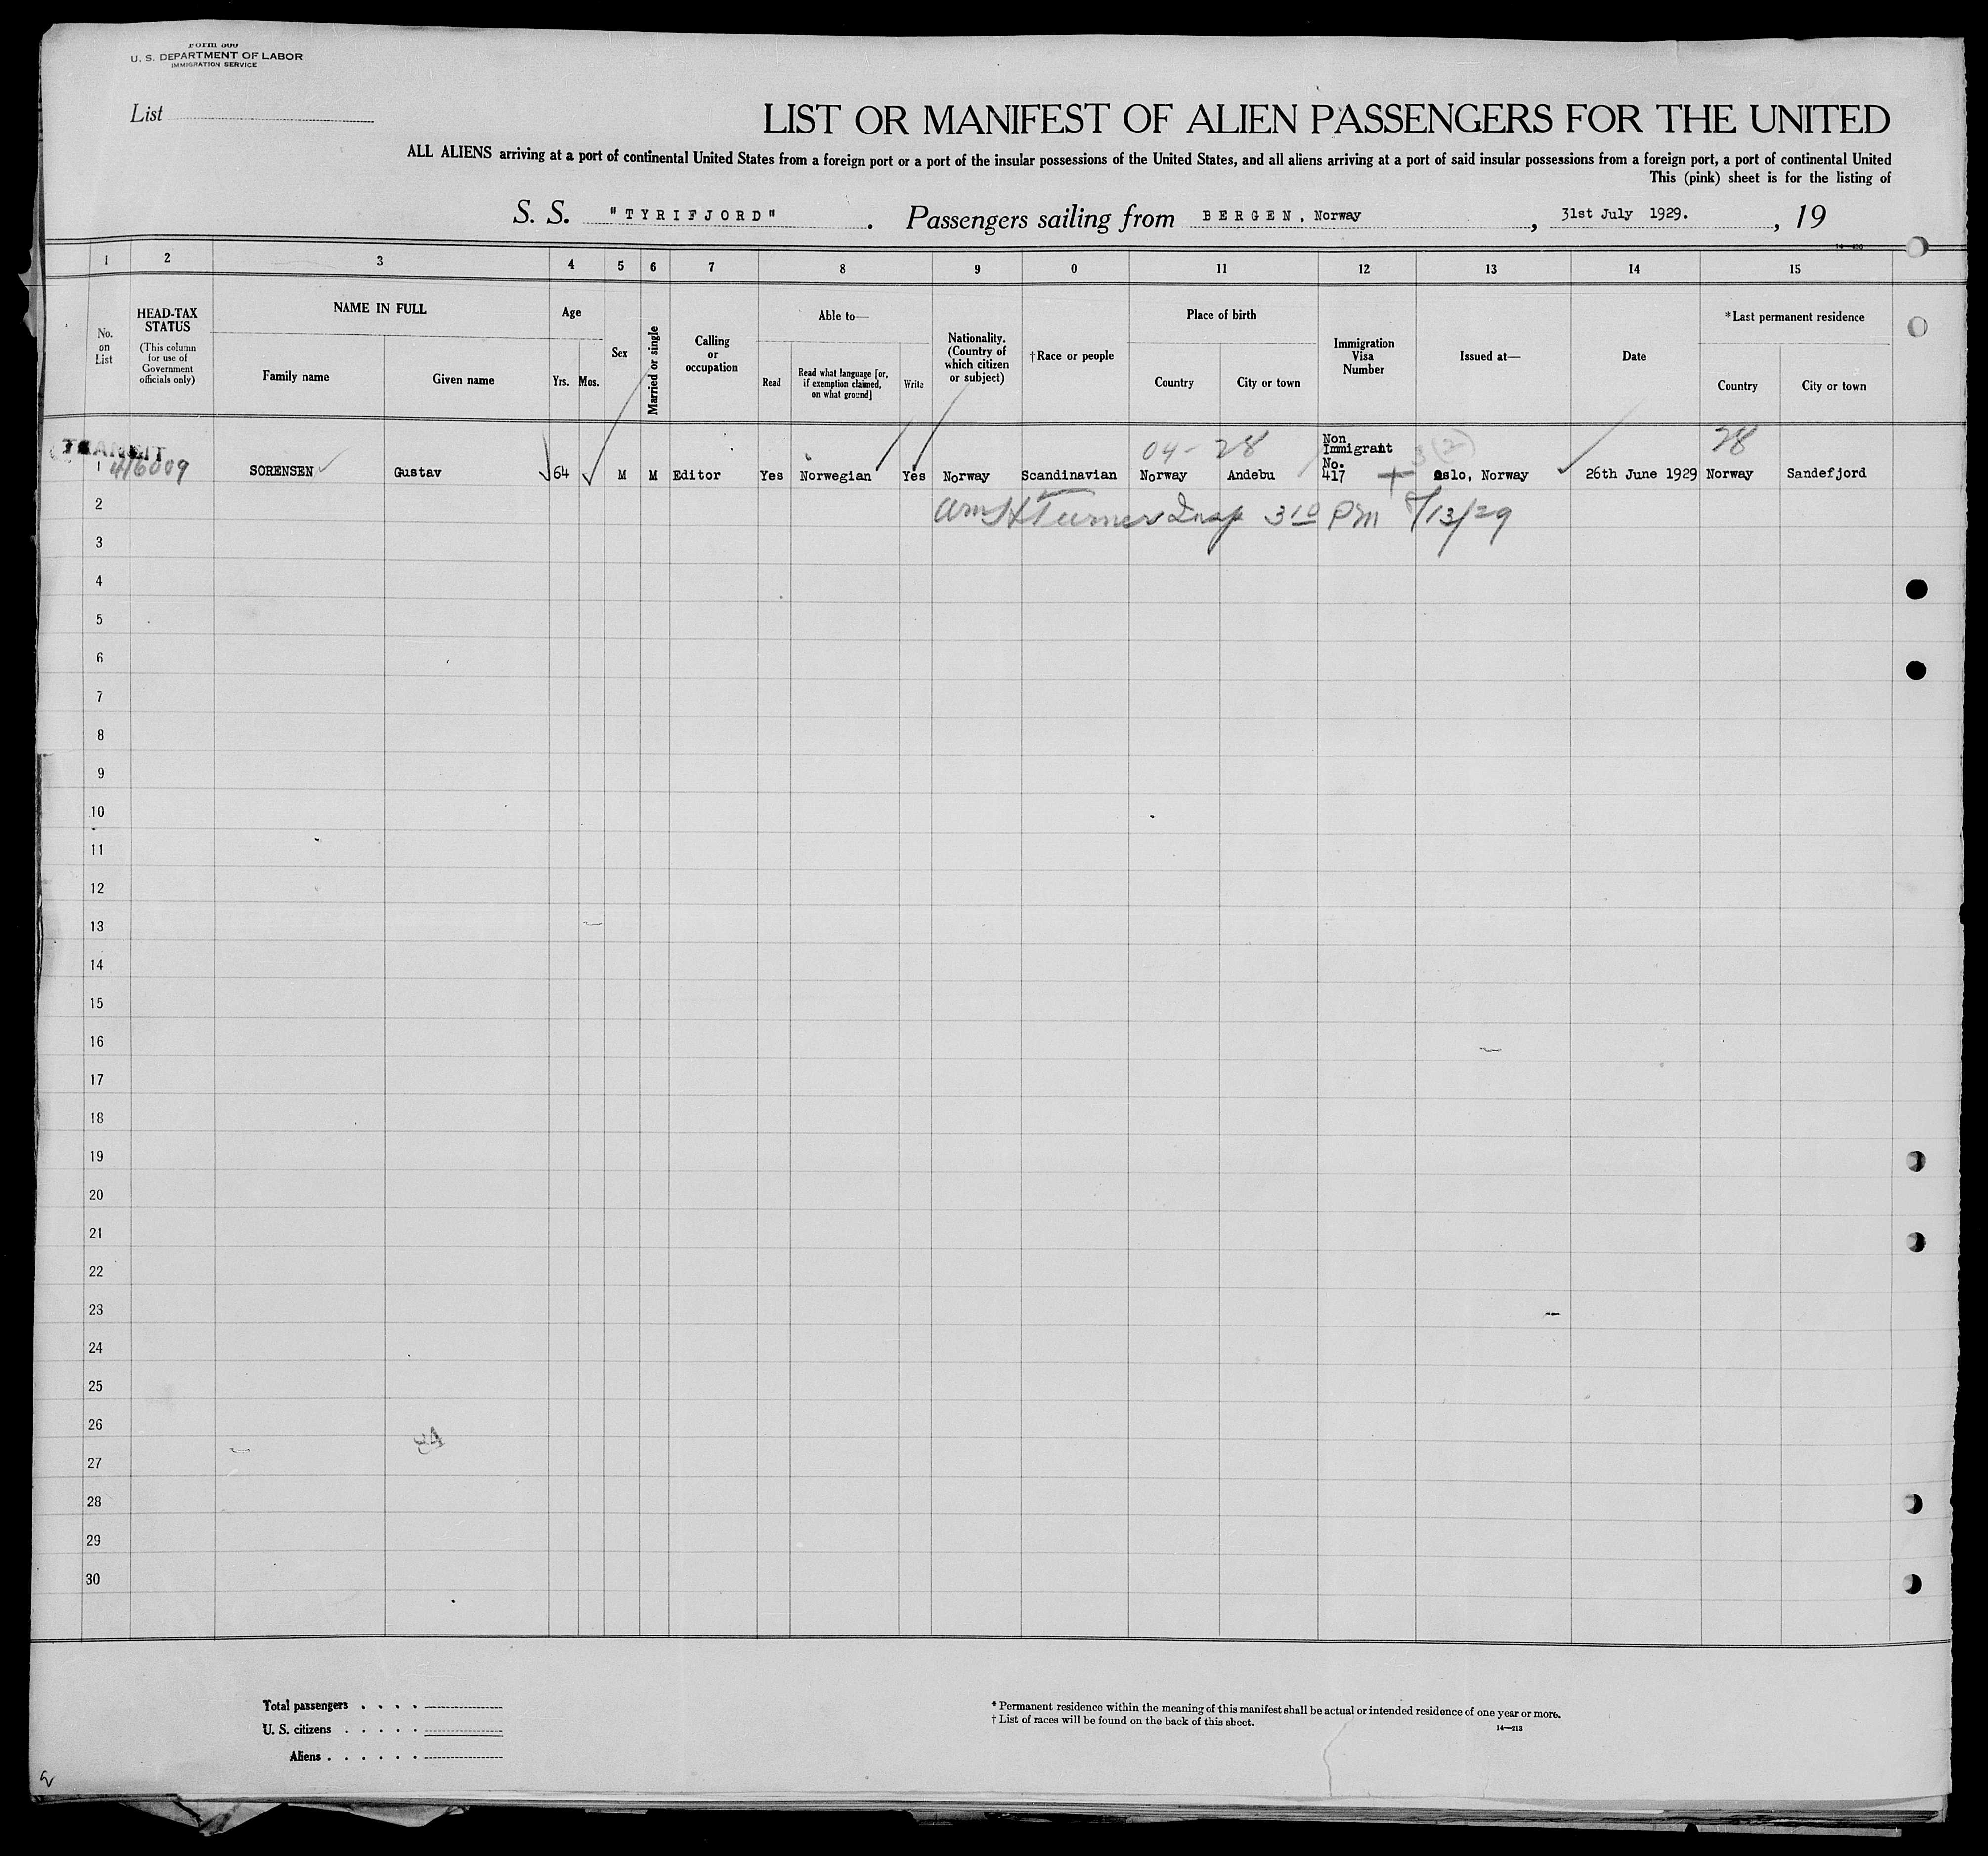 Form 500
U. S. DEPARTMENT OF LABOR
IMMIGRATION SERVICE
List
LIST OR MANIFEST OF ALIEN PASSENGERS FOR THE UNITED
ALL ALIENS arriving at a port of continental United States from a foreign port or a port of the insular possessions of the United States, and all aliens arriving at a port of said insular possessions from a foreign port, a port of continental United
This (pink) sheet is for the listing of
S. S. "TYRIFJORD". Passengers sailing from BERGEN, Norway, 31st July 1929., 19
1 2 3 4 5 6 7 8 9 0 11 12 13 14 15
No. on List
HEAD-TAX STATUS
(This column for use of Government officials only)
NAME IN FULL
Family name
Given name
Age
Yrs. Mos.
Sex
Married or single
Calling or occupation
Able to—
Read
Read what language [or, if exemption claimed, on what ground]
Write
Nationality. (Country of which citizen or subject)
†Race or people
Place of birth
Country
City or town
Immigration Visa Number
Issued at—
Date
*Last permanent residence
Country
City or town
TRANSIT
04- 28
3 (2)
28
1 416009 SORENSEN Gustav 64 M M Editor Yes Norwegian Yes Norway Scandinavian Norway Andebu Non Immigrant No. 417 Oslo, Norway 26th June 1929 Norway Sandefjord
2
Wm H Turner Insp 3 10 PM 8/13/29
3
4
5
6
7
8
9
10
11
12
13
14
15
16
17
18
19
20
21
22
23
24
25
26
27
28
29
30
Total passengers . . . .
U. S. citizens . . . . .
Aliens . . . . . .
* Permanent residence within the meaning of this manifest shall be actual or intended residence of one year or more.
† List of races will be found on the back of this sheet.
14—213